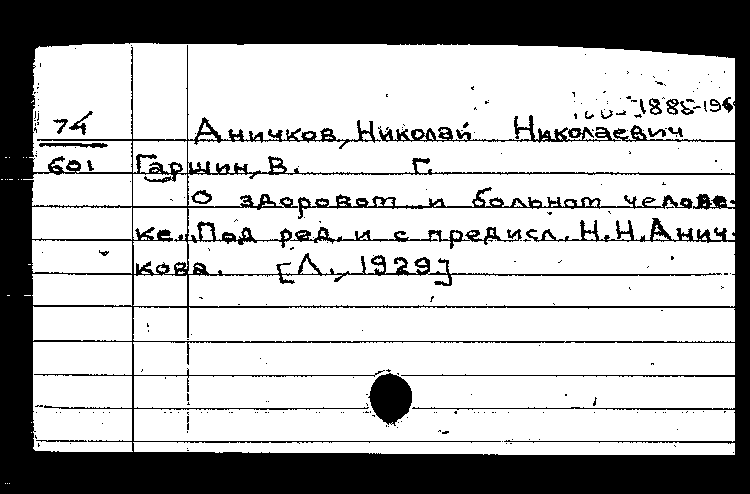 1885-196
74 Аничков, Николай Николаевич
601 Гаршин, В. Г.
О здоровом и больном челове-
ке... Под ред. и с предисл. Н.Н.Анич-
кова. [Л., 1929]